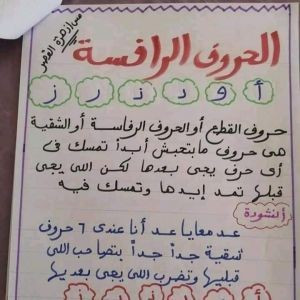 مس / زهرة القصر
الحروف الرافسة
أ و د ذ ر ز
حروف القطيع أو الحروف الرفاسة أو الشقية
هى حروف مابتحبش أبداً تمسك فى
أى حرف يجى بعدها لكن اللى يجى
قبلها تمد إيدها وتمسك فيه
أنشودة
عد معايا عد أنا عندى ٦ حروف
شقية جداً جداً بتصاحب اللى
قبليها وتضرب اللى يجى بعديها